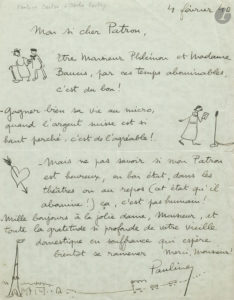 4 février 40
Mon si cher Patron,
Etre Monsieur Philémon et Madame
Baucis, par ces temps abominables
c'est du bon !
- Gagner bien sa vie au micro,
quand l'argent suisse est si
hart perché. c'est de l'agréable !
- Mais ne pas savoir si mon Patron
est heureux, en bon état, dans les
théâtres ou au repos (cet état qu'il
abomine !) ça, c'est pas humain !
- Mille bonjours à la jolie dame, Monsieur, et
toute la gratitude si profonde de votre vieille
domestique en souffrance qui espère
bientôt se ramener
Merci, Monsieur !
Pauline